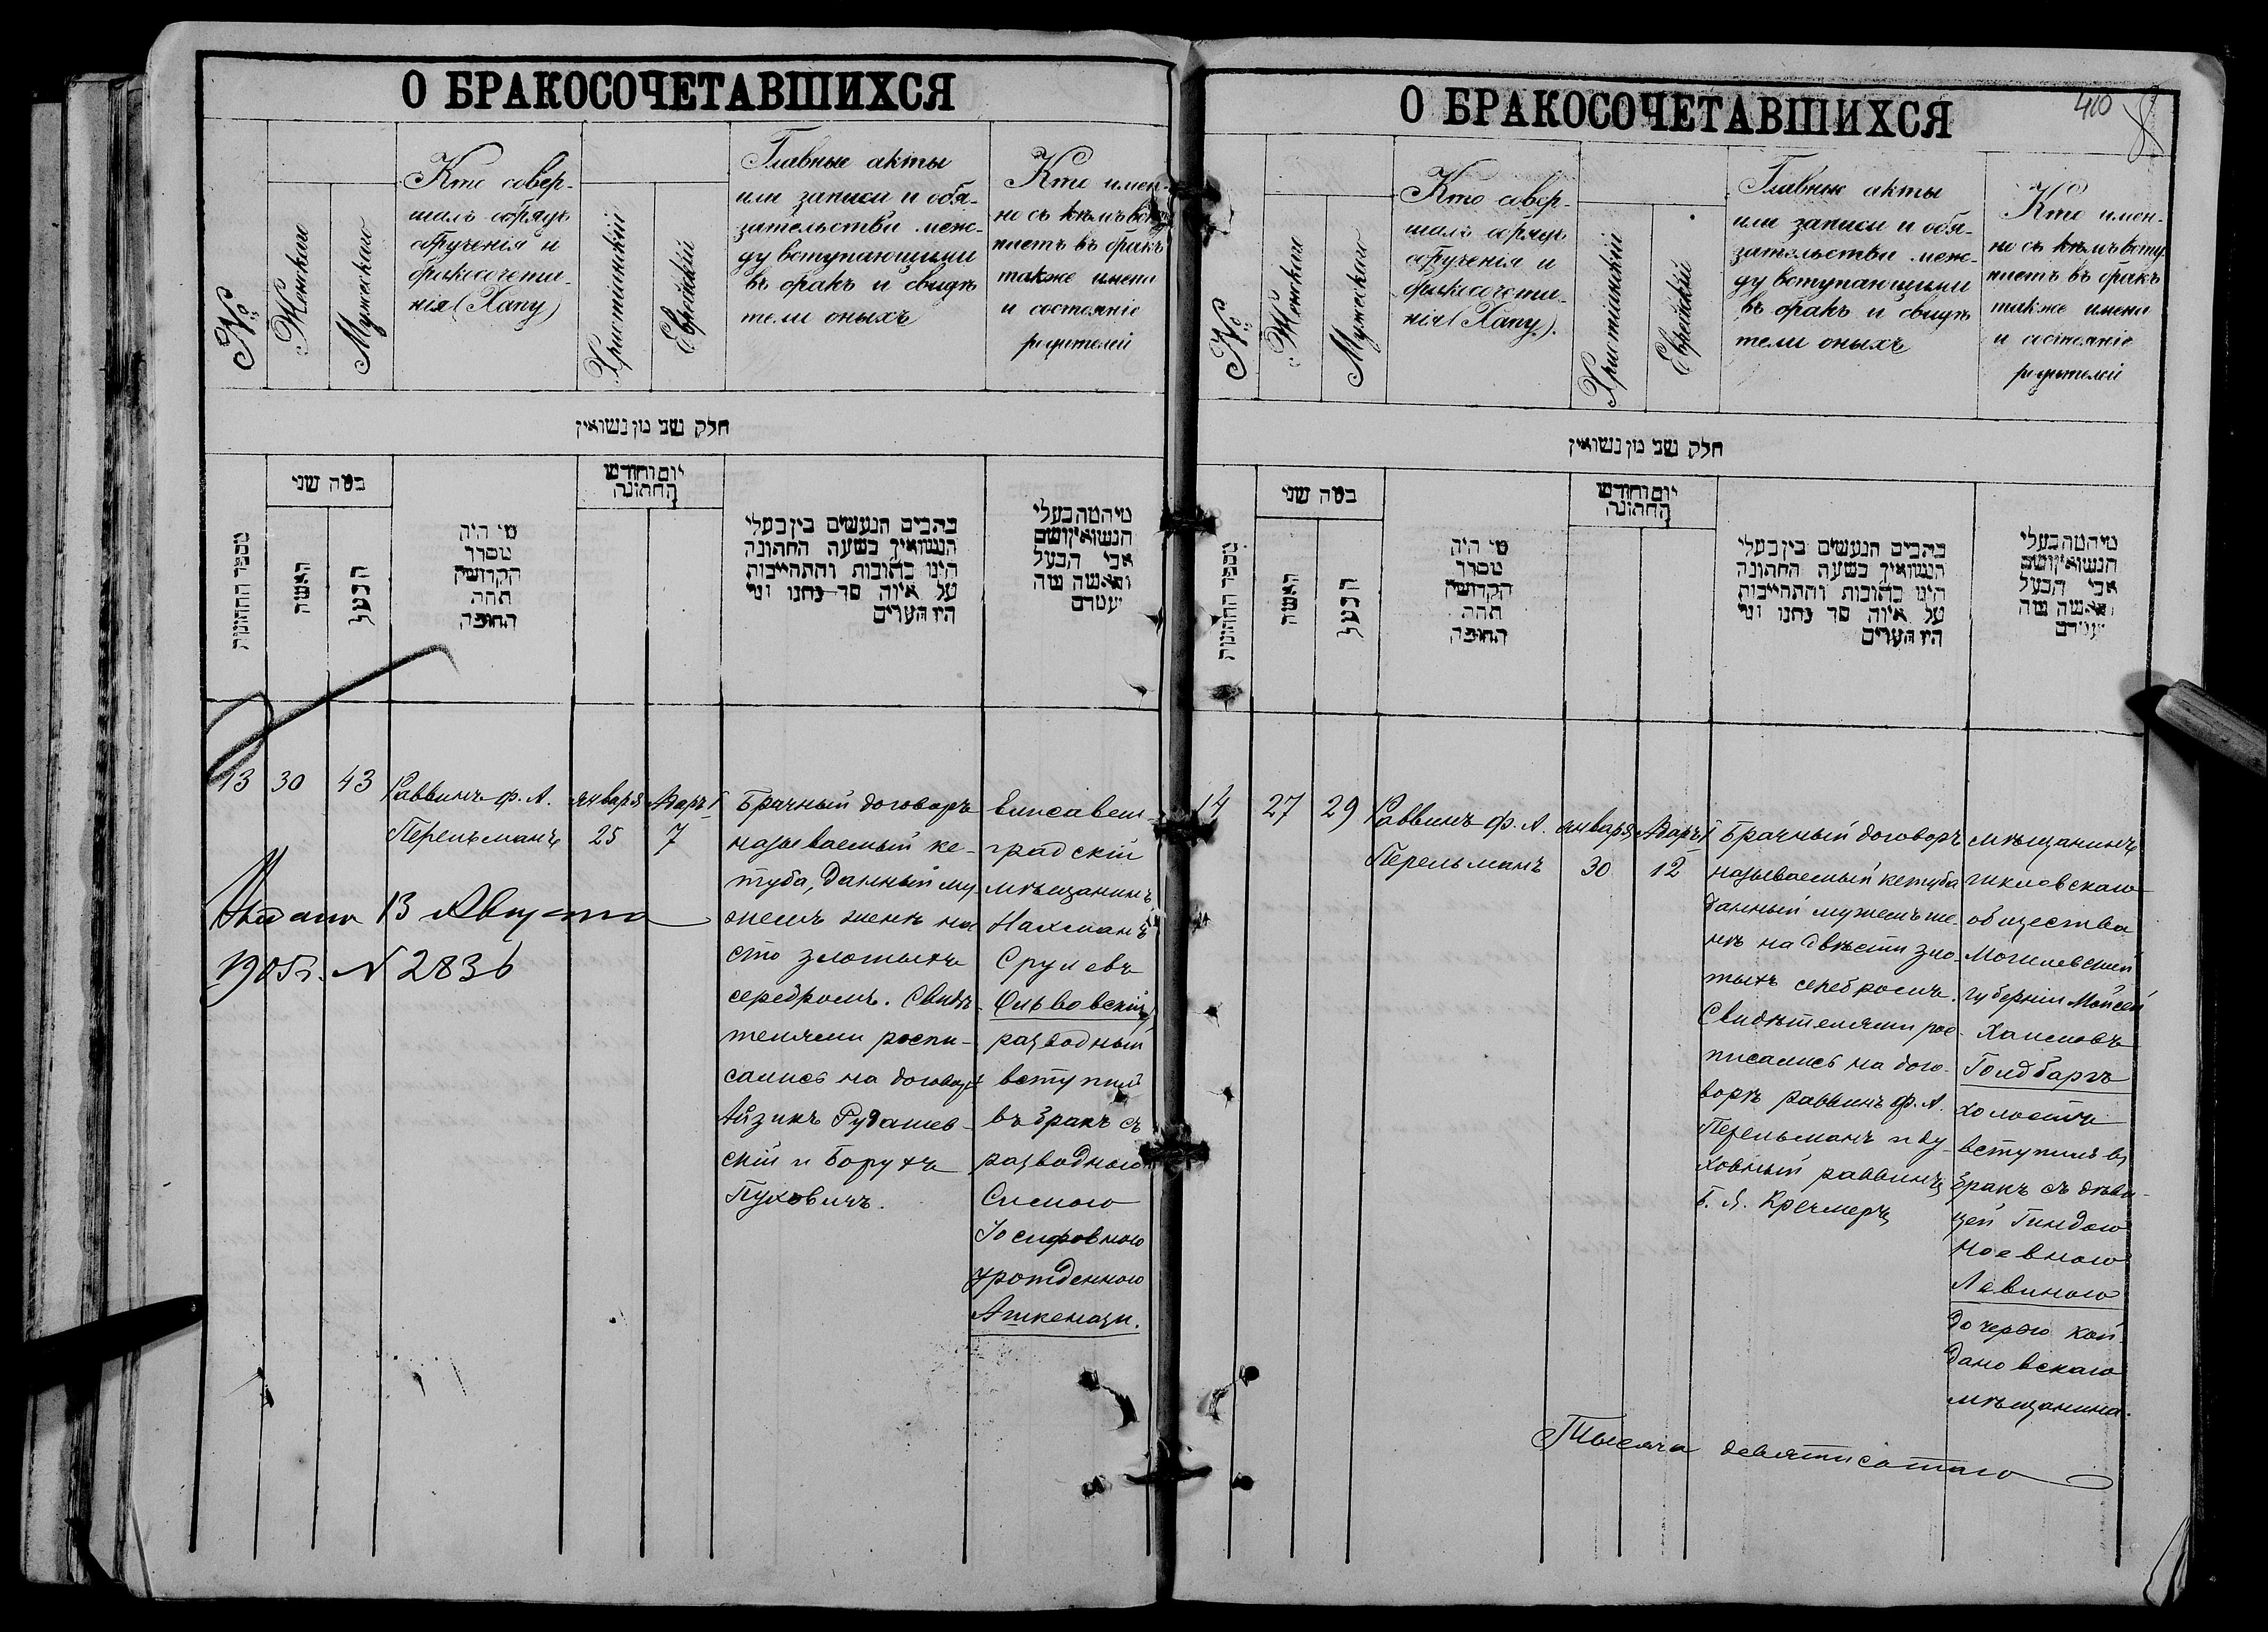 О БРАКОСОЧЕТАВШИХСЯ
№
Женскаго
Мужескаго
Кто совер-
шалъ обрядъ
обрученія и
бракосочета-
нія (Хапу)
Христіанскій
Еврейскій
Главные акты
или записи и обя-
зательства меж-
ду вступающими
въ бракъ и свидѣ
тели оныхъ
Кто имен-
но съ кѣмъ всту
паетъ въ бракъ
также имена
и состояніе
родителей
חלק שני מן נשואין
מספר החתונות
כמה שני
האשה
הבעל
מי היה
מסדר
הקדושין
תחת
החופה
יום וחודש
החתונה
כתבים הנעשים בין בעלי
הנשואין בשעה החתונה
היינו כתובות והתחייבות
על איזה סך נתנו ומי
היו העדים
מי המה בעלי
הנשואין ושם
אבי הבעל
והאשה ומה
מעמדם
13
30
43
Раввинъ Ф. А.
Перельманъ
Января
25
Адаръ I
7
Брачный договоръ
называемый ке-
туба, данный му
жемъ женѣ на
сто злотыхъ
серебромъ. Свидѣ-
телями распи-
сались на договорѣ
Айзикъ Рудашев-
скій и Борухъ
Пуховичъ.
Елисавет-
градскій
мѣщанинъ
Нахманъ
Срулевъ
Ольвовскій,
разводный
вступилъ
въ бракъ съ
разводною
Симою
Іосифовною
урожденною
Ашкенази.
Выдана 13 Августа
1905 г. N 2836
410
О БРАКОСОЧЕТАВШИХСЯ
№
Женскаго
Мужескаго
Кто совер-
шалъ обрядъ
обрученія и
бракосочета-
нія (Хапу).
Христіанскій
Еврейскій
Главные акты
или записи и обя-
зательства меж-
ду вступающими
въ бракъ и свидѣ
тели оныхъ
Кто имен-
но съ кѣмъ всту
паетъ въ бракъ
также имена
и состояніе
родителей
חלק שני מן נשואין
מספר החתונות
כמה שני
האשה
הבעל
מי היה
מסדר
הקדושין
תחת
החופה
יום וחודש
החתונה
כתבים הנעשים בין בעלי
הנשואין בשעה החתונה
היינו כתובות והתחייבות
על איזה סך נתנו ומי
היו העדים
מי המה בעלי
הנשואין ושם
אבי הבעל
והאשה ומה
מעמדם
14
27
29
Раввинъ Ф. А.
Перельманъ
Января
30
Адаръ I
12
Брачный договоръ
называемый кетуба
данный мужемъ же-
нѣ на двѣсти зло-
тыхъ серебромъ.
Свидѣтелями рос-
писались на дого-
ворѣ раввинъ Ф. А.
Перельманъ и ду-
ховный раввинъ
Б. Я. Кремеръ
мѣщанинъ
шкловскаго
общества
Могилевской
губерніи Мойсей
Хаимовъ
Голдбаргъ
холостъ
вступилъ въ
бракъ съ дѣви-
цей Гиндою
Ноевною
Левиною
дочерью кой-
дановскаго
мѣщанина.
Тысяча девятисотаго